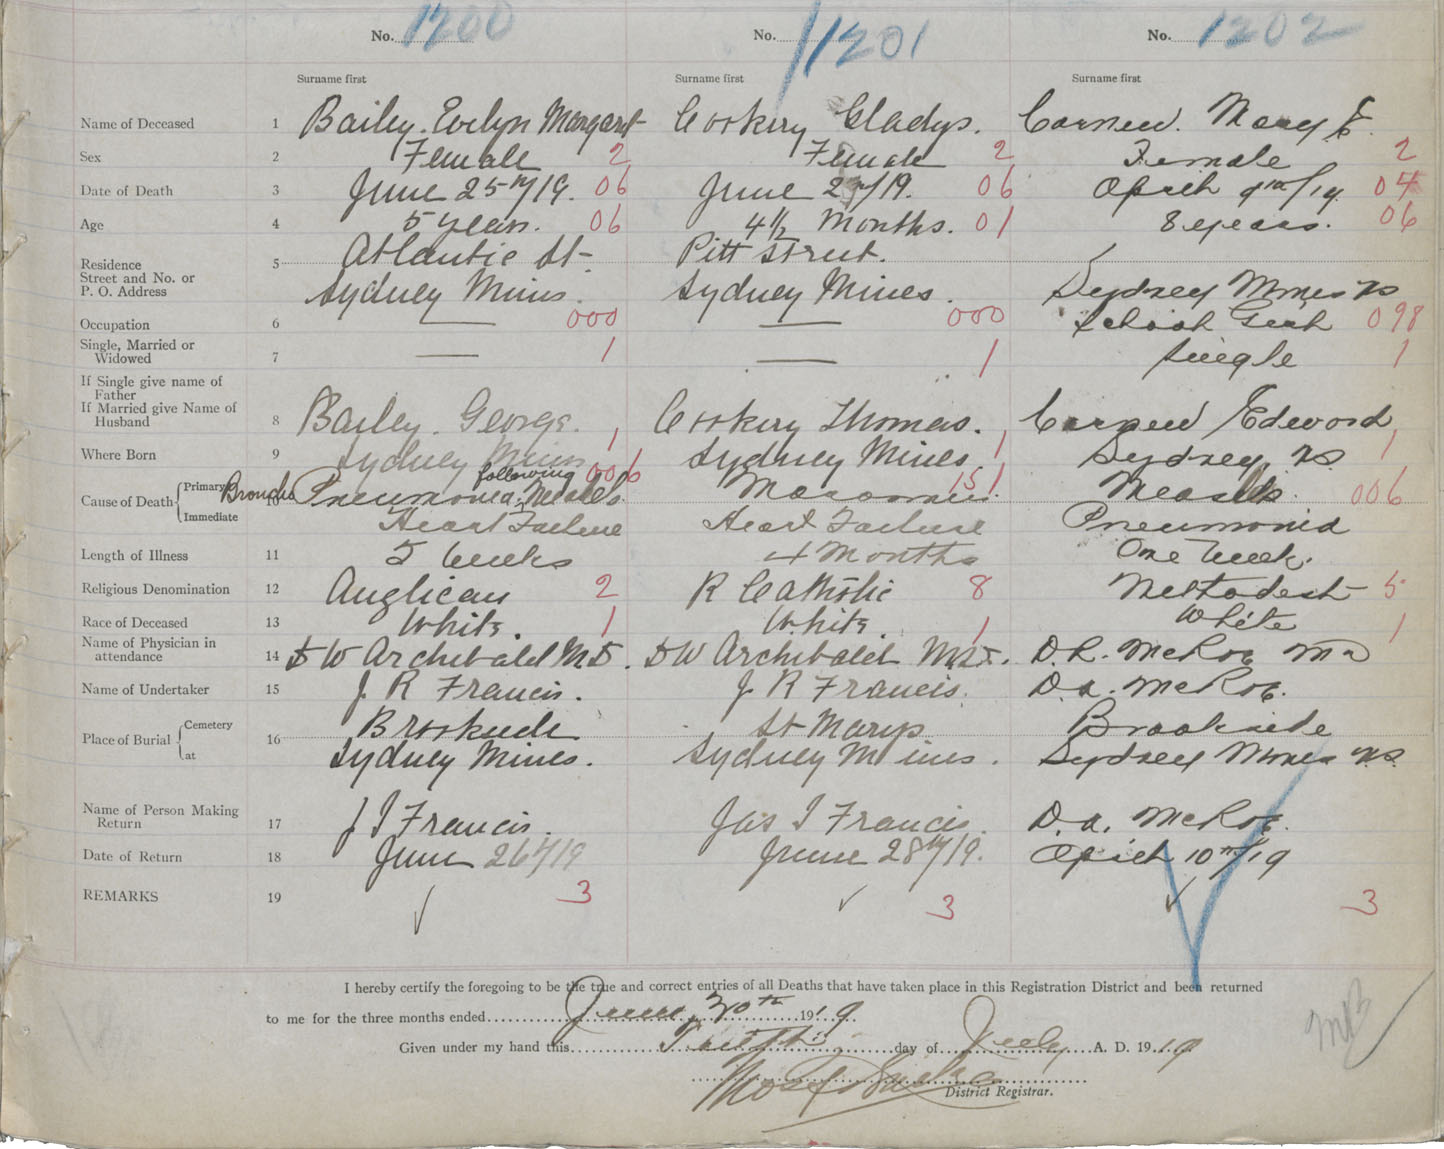 No. 1200 No. 1201 No. 1202
Surname first Surname first Surname first
Name of Deceased 1 Bailey. Evelyn Margaret Cookery Gladys. Carnew. Mary E.
Sex 2 Female 2 Female 2 Female 2
Date of Death 3 June 25th/19. 06 June 27/19. 06 April 9th/19. 04
Age 4 5 years. 06 4½ Months. 01 8 years. 06
Residence 5 Atlantic St- Pitt Street.
Street and No. or
P. O. Address Sydney Mines. Sydney Mines. Sydney Mines NS
Occupation 6 — 000 — 000 School Girl 098
Single, Married or
Widowed 7 — 1 — 1 Single 1
If Single give name of
Father
If Married give Name of
Husband 8 Bailey. George. Cookery Thomas. Carnew Edward
Where Born 9 Sydney Mines 1 Sydney Mines 1 Sydney, NS 1
following 006 151
Cause of Death Primary 10 Broncho Pneumonia, Measles. Marasmus. Measles. 006
Immediate Heart Failure Heart Failure Pneumonia
Length of Illness 11 5 Weeks 4 Months One Week.
Religious Denomination 12 Anglican 2 R Catholic 8 Methodist 5
Race of Deceased 13 White. 1 White. 1 White 1
Name of Physician in
attendance 14 DW Archibald MD. DW Archibald MD. D.R. McRae MD
Name of Undertaker 15 J R Francis. J R Francis. D.A. McRae.
Place of Burial Cemetery 16 Brookside St Marys Brookside
at Sydney Mines. Sydney Mines. Sydney Mines NS.
Name of Person Making
Return 17 J I Francis. Jas I Francis. D.A. McRae.
Date of Return 18 June 26th/19 June 28th/19. April 10th/19
REMARKS 19 3 3 3
I hereby certify the foregoing to be the true and correct entries of all Deaths that have taken place in this Registration District and been returned
to me for the three months ended June 30th 1919
Given under my hand this day of July A. D. 1919
District Registrar.